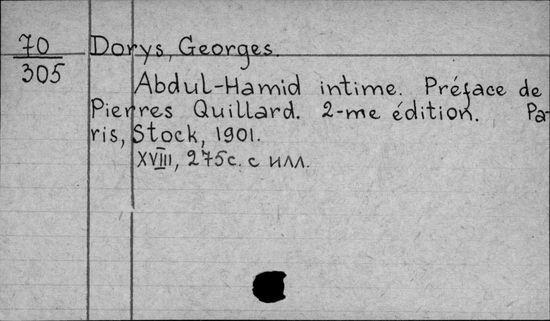 70
305
Dorys, Georges.
Abdul-Hamid intime. Préface de
Pierres Quillard. 2-me édition. Pa-
ris, Stock, 1901.
XVIII, 275с. с илл.